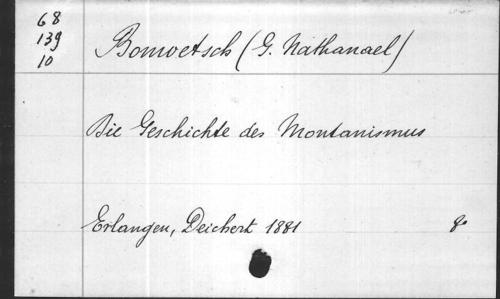 68
139
10
Bonwetsch (G. Nathanael)
Die Geschichte des Montanismus
Erlangen, Deichert 1881 8°